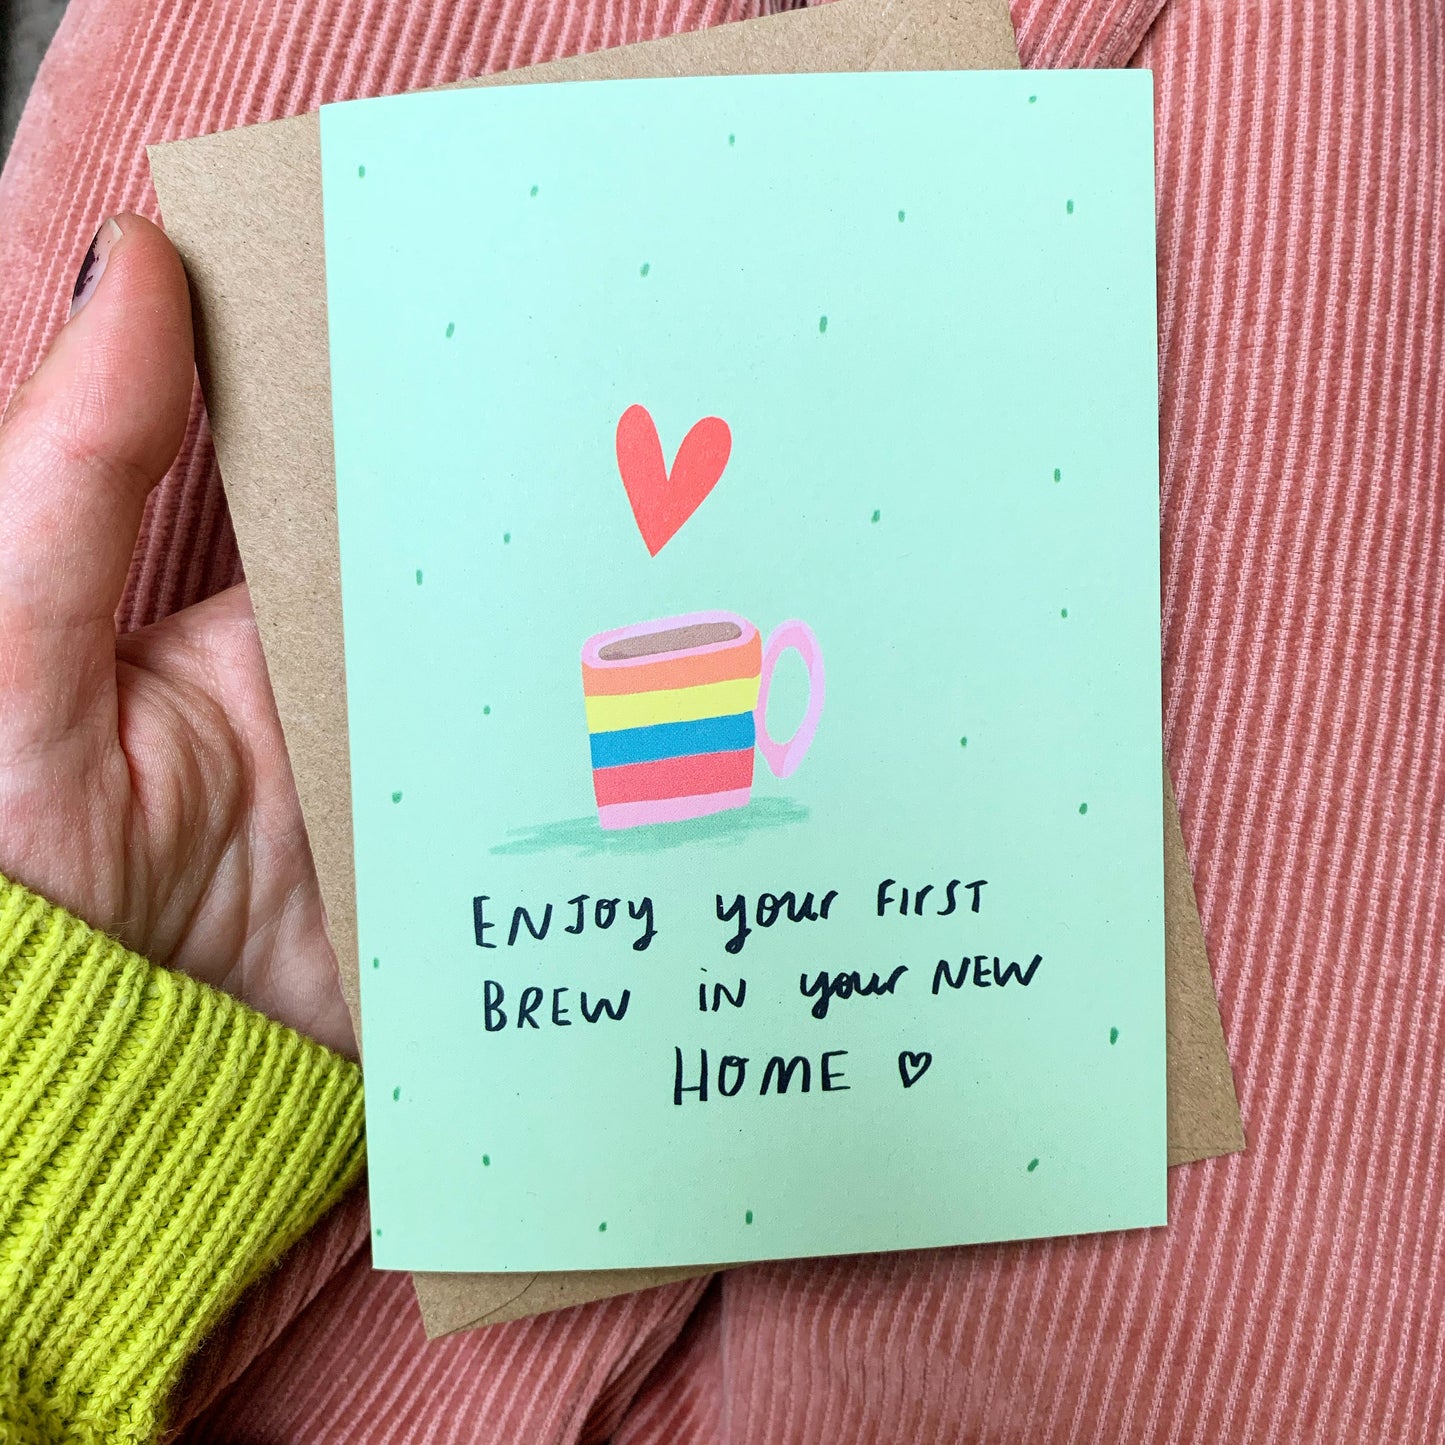 ENJOY your FIRST
BREW IN your NEW
HOME ♡